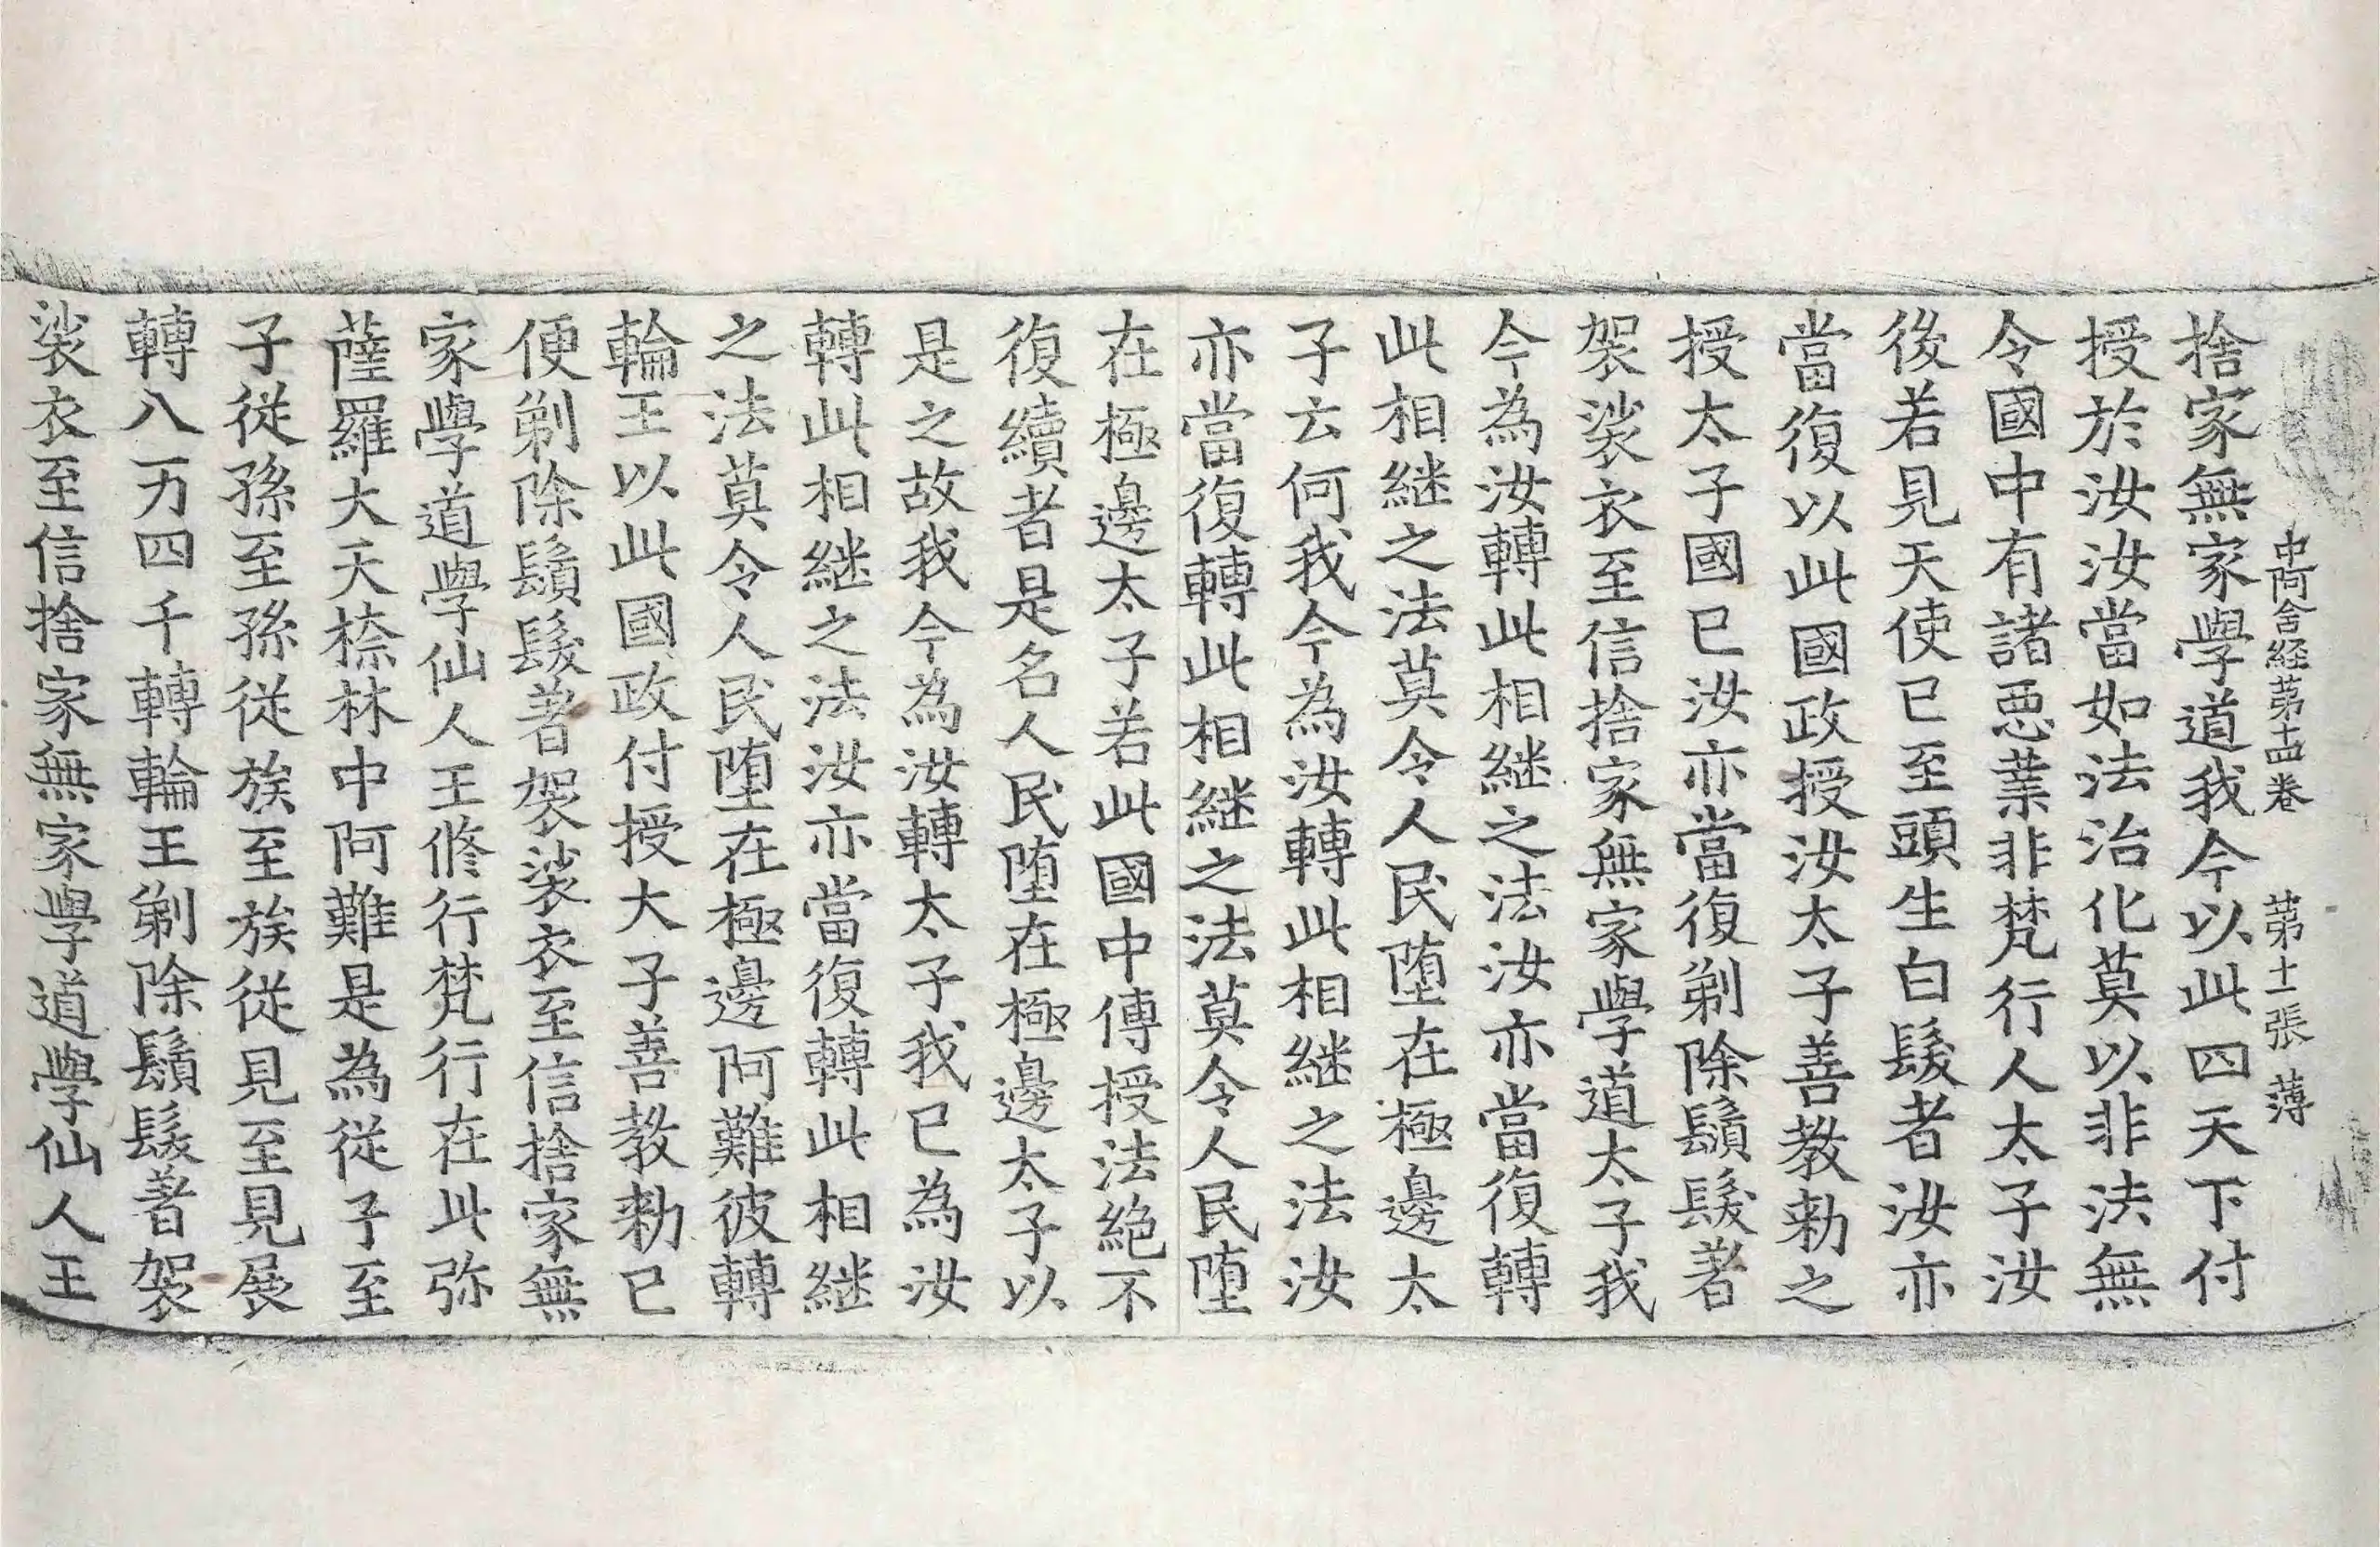 中阿含経苐十四卷 苐十二張 薄
捨家無家學道我今以此四天下付
授於汝汝當如法治化莫以非法無
令國中有諸惡業非梵行人太子汝
後若見天使已至頭生白髮者汝亦
當復以此國政授汝太子善教勑之
授太子國已汝亦當復剃除鬚髮著
袈裟衣至信捨家無家學道太子我
今為汝轉此相継之法汝亦當復轉
此相継之法莫令人民墮在極邊太
子云何我今為汝轉此相継之法汝
亦當復轉此相継之法莫令人民墮
在極邊太子若此國中傳授法絕不
復續者是名人民墮在極邊太子以
是之故我今為汝轉太子我已為汝
轉此相継之法汝亦當復轉此相継
之法莫令人民墮在極邊阿難彼轉
輪王以此國政付授大子善教勑已
便剃除鬚髮著袈裟衣至信捨家無
家學道學仙人王修行梵行在此弥
薩羅大天㮈林中阿難是為從子至
子從孫至孫從族至族從見至見展
轉八万四千轉輪王剃除鬚髮著袈
裟衣至信捨家無家學道學仙人王